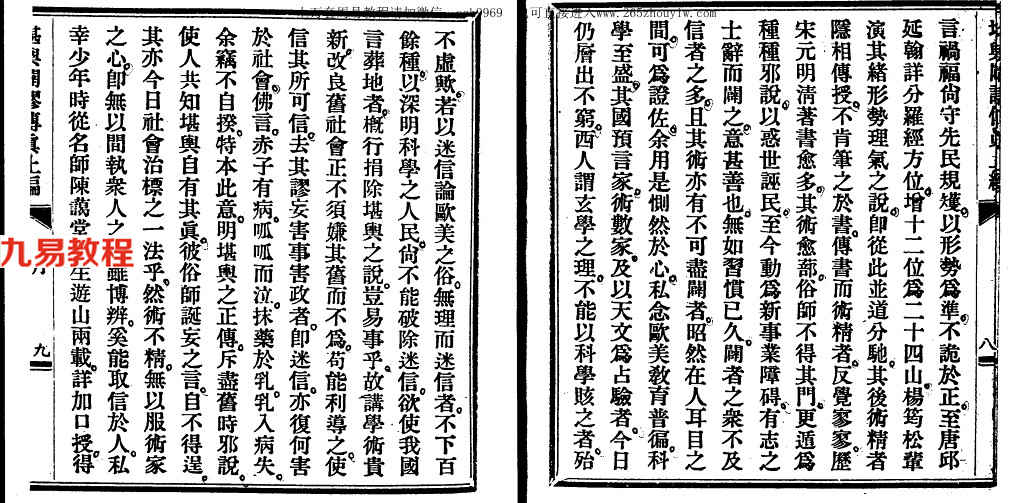 言禍福尙守先民規矱以形勢爲準不詭於正至唐邱
延翰詳分羅經方位增十二位爲二十四山楊筠松輩
演其緖形勢理氣之說卽從此並道分馳其後術精者
隱相傳授不肯筆之於書傳書而術精者反覺寥寥歷
宋元明淸著書愈多其術愈蔀俗師不得其門更遁爲
種種邪說以惑世誣民至今動爲新事業障碍有志之
士辭而闢之意甚善也無如習慣已久闢者之衆不及
信者之多且其術亦有不可盡闢者昭然在人耳目之
間可爲證佐余用是惻然於心私念歐美敎育普徧科
學至盛其國預言家術數家及以天文爲占驗者今日
仍層出不窮西人謂玄學之理不能以科學賅之者殆
八
不虛歟若以迷信論歐美之俗無理而迷信者不下百
餘種以深明科學之人民尙不能破除迷信欲使我國
言葬地者槪行捐除堪輿之說豈易事乎故講學術貴
新改良舊社會正不須嫌其舊而不爲苟能利導之使
信其所可信去其謬妄害事害政者卽迷信亦復何害
於社會佛言赤子有病呱呱而泣抹藥於乳乳入病失
余竊不自揆特本此意明堪輿之正傳斥盡舊時邪說
使人共知堪輿自有其眞彼俗師誕妄之言自不得逞
其亦今日社會治標之一法乎然術不精無以服術家
之心卽無以間執衆人之
雖博辨奚能取信於人私
幸少年時從名師陳藹堂
生遊山兩載詳加口授得
堪輿闢謬傳眞上編
九
九易教程
www.265zhouyiw.com